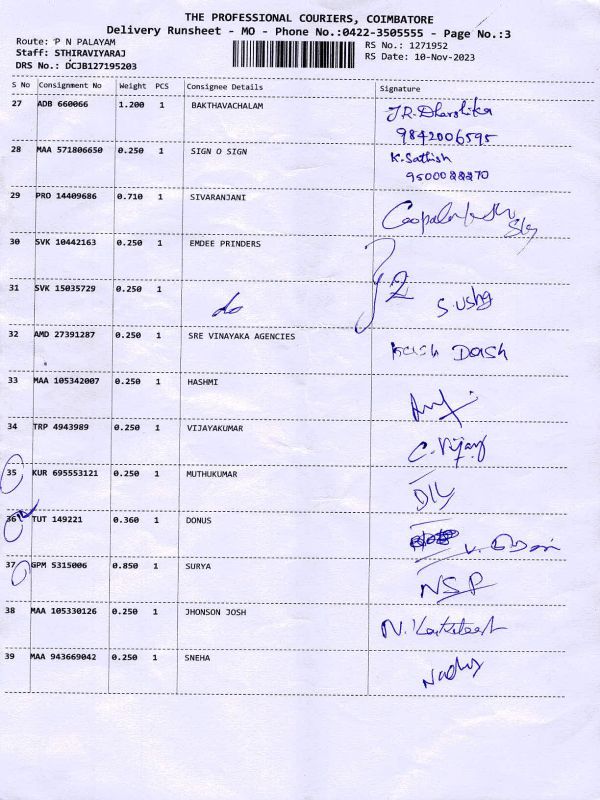 THE PROFESSIONAL COURIERS, COIMBATORE
Delivery Runsheet - MO - Phone No.:0422-3505555 - Page No.:3
Route: P N PALAYAM
RS No.: 1271952
Staff: STHIRAVIYARAJ
RS Date: 10-Nov-2023
DRS No.: DCJB127195203
S No Consignment No Weight PCS Consignee Details Signature
27 ADB 660066 1.200 1 BAKTHAVACHALAM J.R.Dharshika
9842006595
28 MAA 571806650 0.250 1 SIGN O SIGN K.Sathish
9500088870
29 PRO 14409686 0.710 1 SIVARANJANI
30 SVK 10442163 0.250 1 EMDEE PRINDERS
31 SVK 15035729 0.250 1 do S.usha
32 AMD 27391287 0.250 1 SRE VINAYAKA AGENCIES Dash
33 MAA 105342007 0.250 1 HASHMI
34 TRP 4943989 0.250 1 VIJAYAKUMAR C.Vijay
35 KUR 695553121 0.250 1 MUTHUKUMAR
36 TUT 149221 0.360 1 DONUS
37 GPM 5315006 0.850 1 SURYA NSP
38 MAA 105330126 0.250 1 JHONSON JOSH
39 MAA 943669042 0.250 1 SNEHA